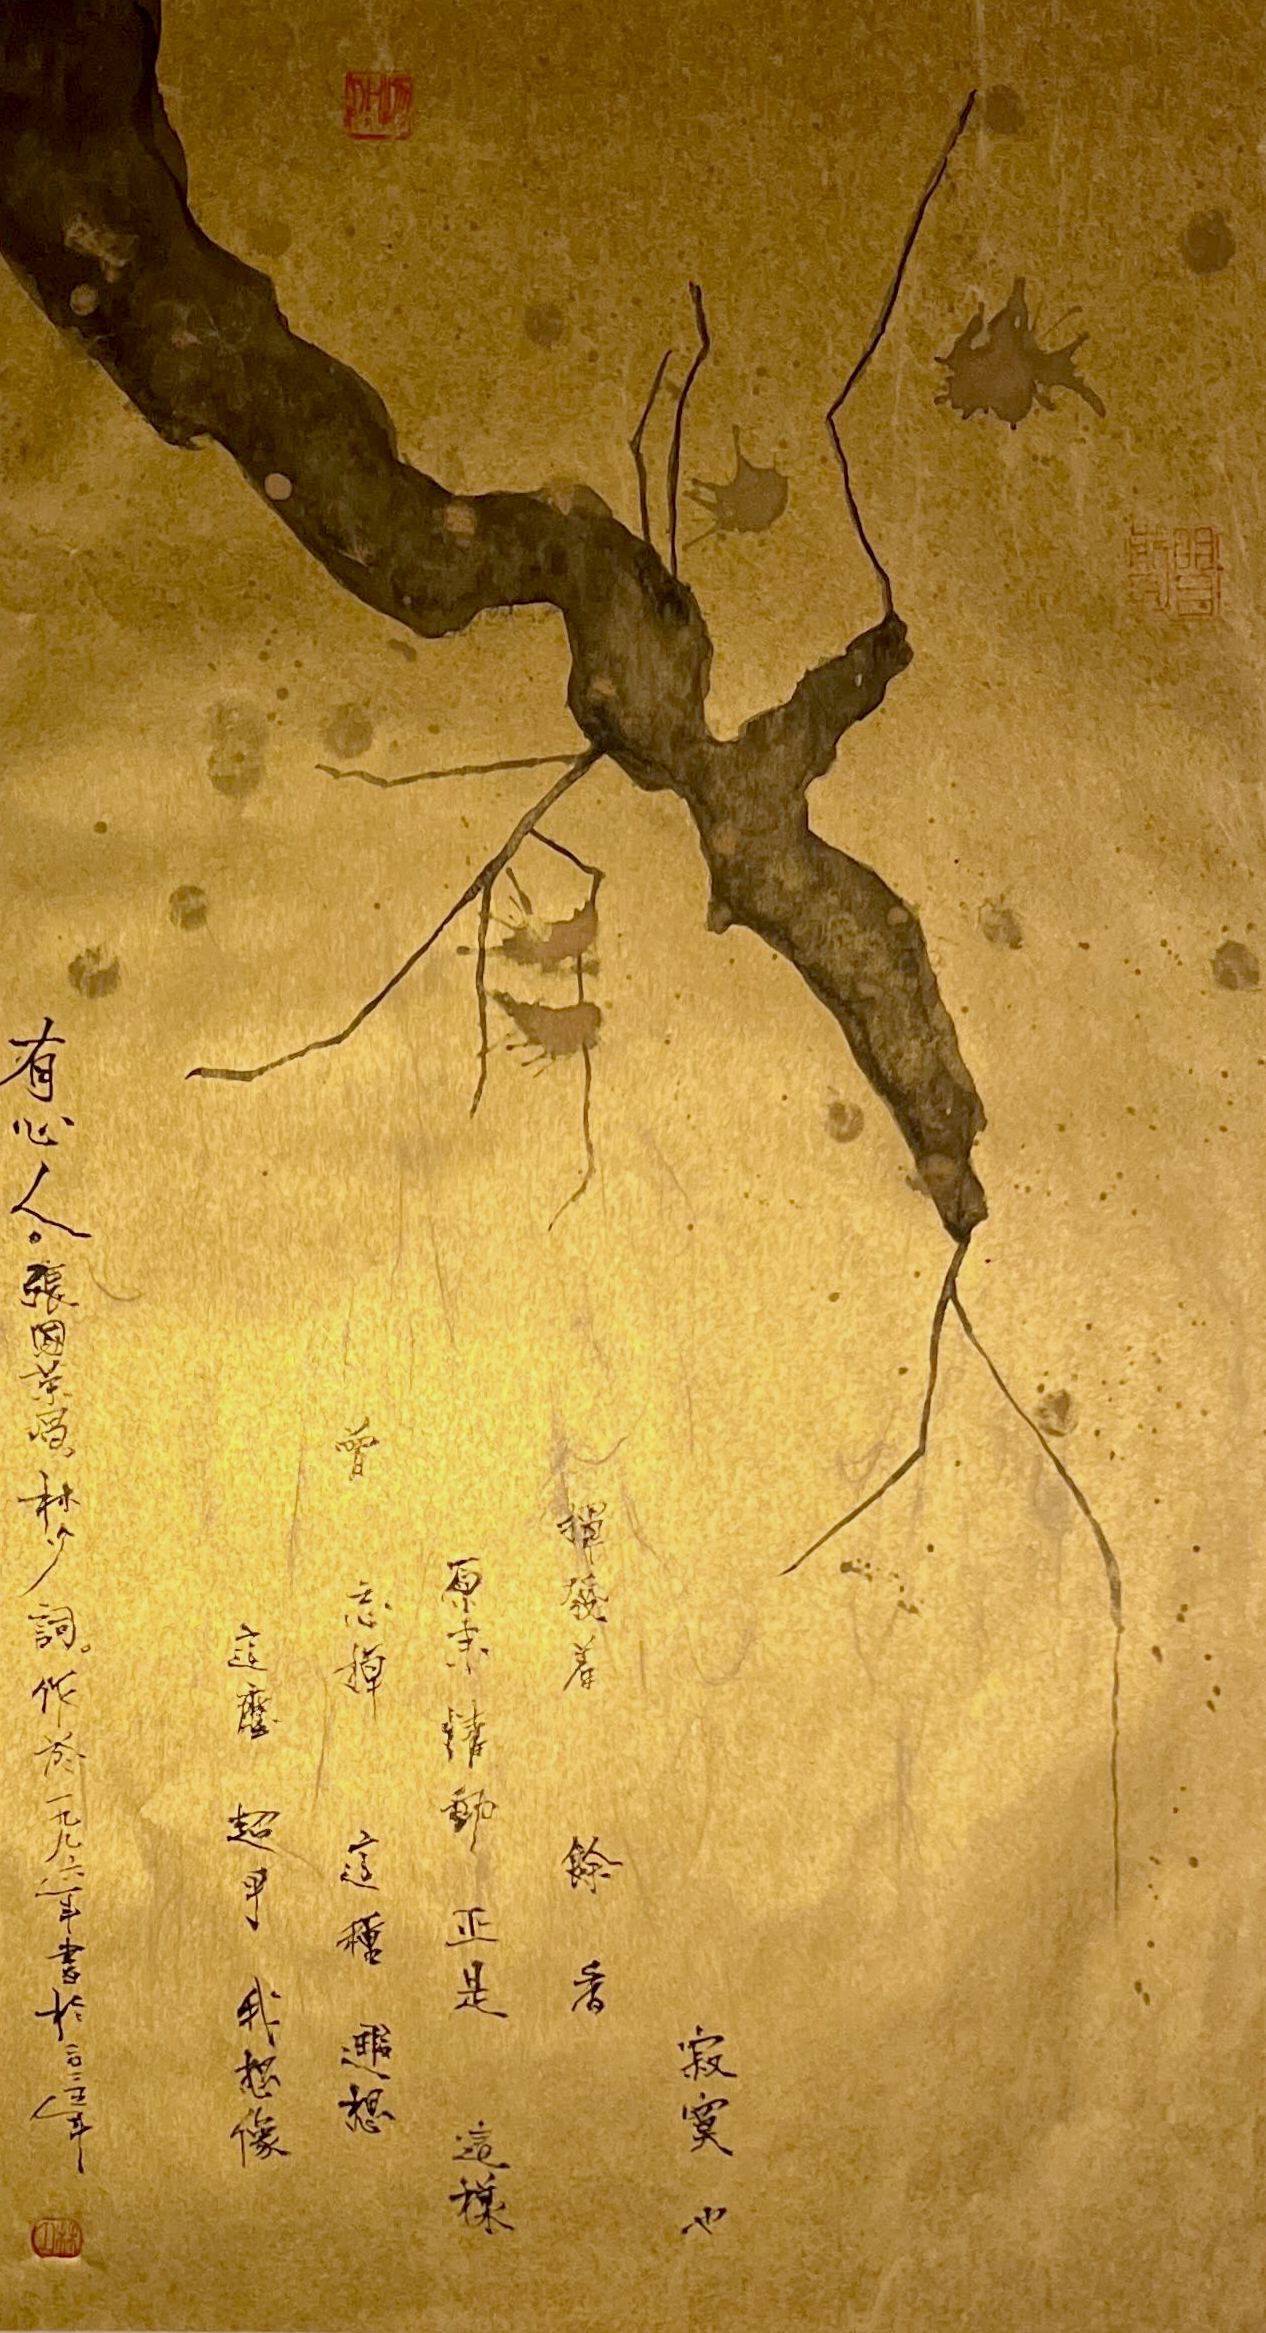 寂寞 也
揮發着 餘香
原來情動 正是 這樣
曾 忘掉 這種 遐想
這麼 超乎 我想像
有心人。張國榮 林夕詞。作於一九九六年書於二〇二五年